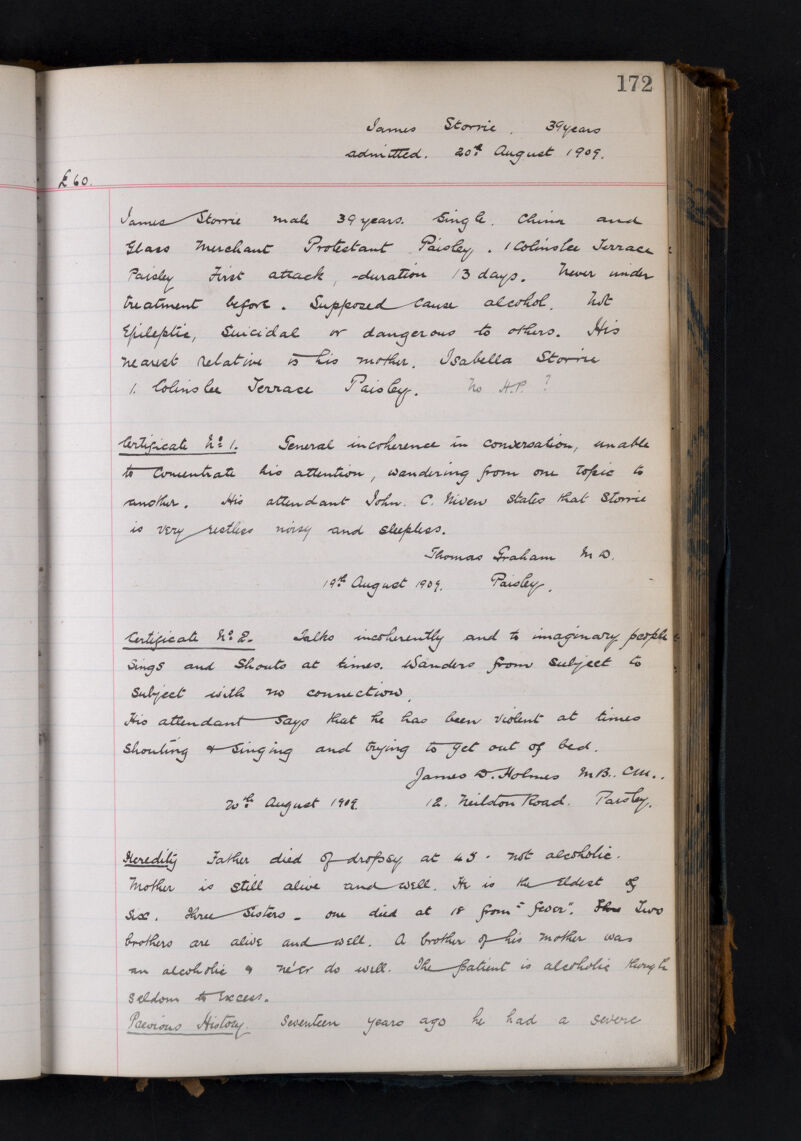 172
James Storrie. 39 years
admitted. 20th August 1909.
£60.
James Storrie male 39 years. Single. China and
Glass Merchant Protestant Paisley. 1 Colinslee Terrace
Paisley First attack, duration 13 days. Never under
treatment before. Supposed cause alcohol. Not
Epileptic, Suicidal or dangerous to others. His
nearest relative is his mother. Isabella Storrie
1. Colinslee Terrace Paisley. No H.P. ?
Certificate No 1. General incoherence in conversation, unable
to concentrate his attention, wandering from one topic to
another. His attendant John. C. Niven states that Storrie
is very restless noisy and sleepless.
Thomas Graham M D.
19th August 1909. Paisley.
Certificate No 2. Talks incoherently and to imaginary people
Sings and Shouts at times. Wanders from subject to
subject with no connection.
His attendant says that he has been violent at times
shouting & singing and trying to get out of bed.
James D. Holmes M.B.. CM..
20th August 1909. 12. Neilston Road. Paisley.
Heredity Father died of dropsy at 45. not alcoholic.
Mother is still alive and well. He is the eldest of
six. Three Sisters - one died at 18 from "fever". Two
brothers are alive and well. A brother of his mother was
an alcoholic & né'er do well. The patient is alcoholic though
seldom to excess.
Previous History. Seventeen years ago he had a severe